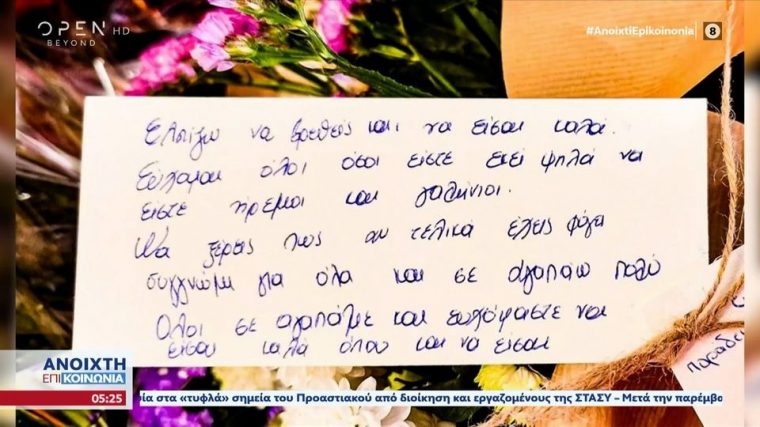 OPEN HD
BEYOND
#ΑνοιχτήΕπικοινωνία 8
Ελπίζω να βρεθείς και να είσαι καλά.
Εύχομαι όλοι όσοι είστε εκεί ψηλά να
είστε ήρεμοι και γαλήνιοι.
Να ξέρεις πως αν τελικά έχεις φύγει
συγγνώμη για όλα και σε αγαπάω πολύ
Όλοι σε αγαπάμε και ευχόμαστε να
είσαι καλά όπου και να είσαι
παραδε
ΑΝΟΙΧΤΗ
ΕΠΙΚΟΙΝΩΝΙΑ
05:25 ρία στα «τυφλά» σημεία του Προαστιακού από διοίκηση και εργαζομένους της ΣΤΑΣΥ – Μετά την παρέμβα